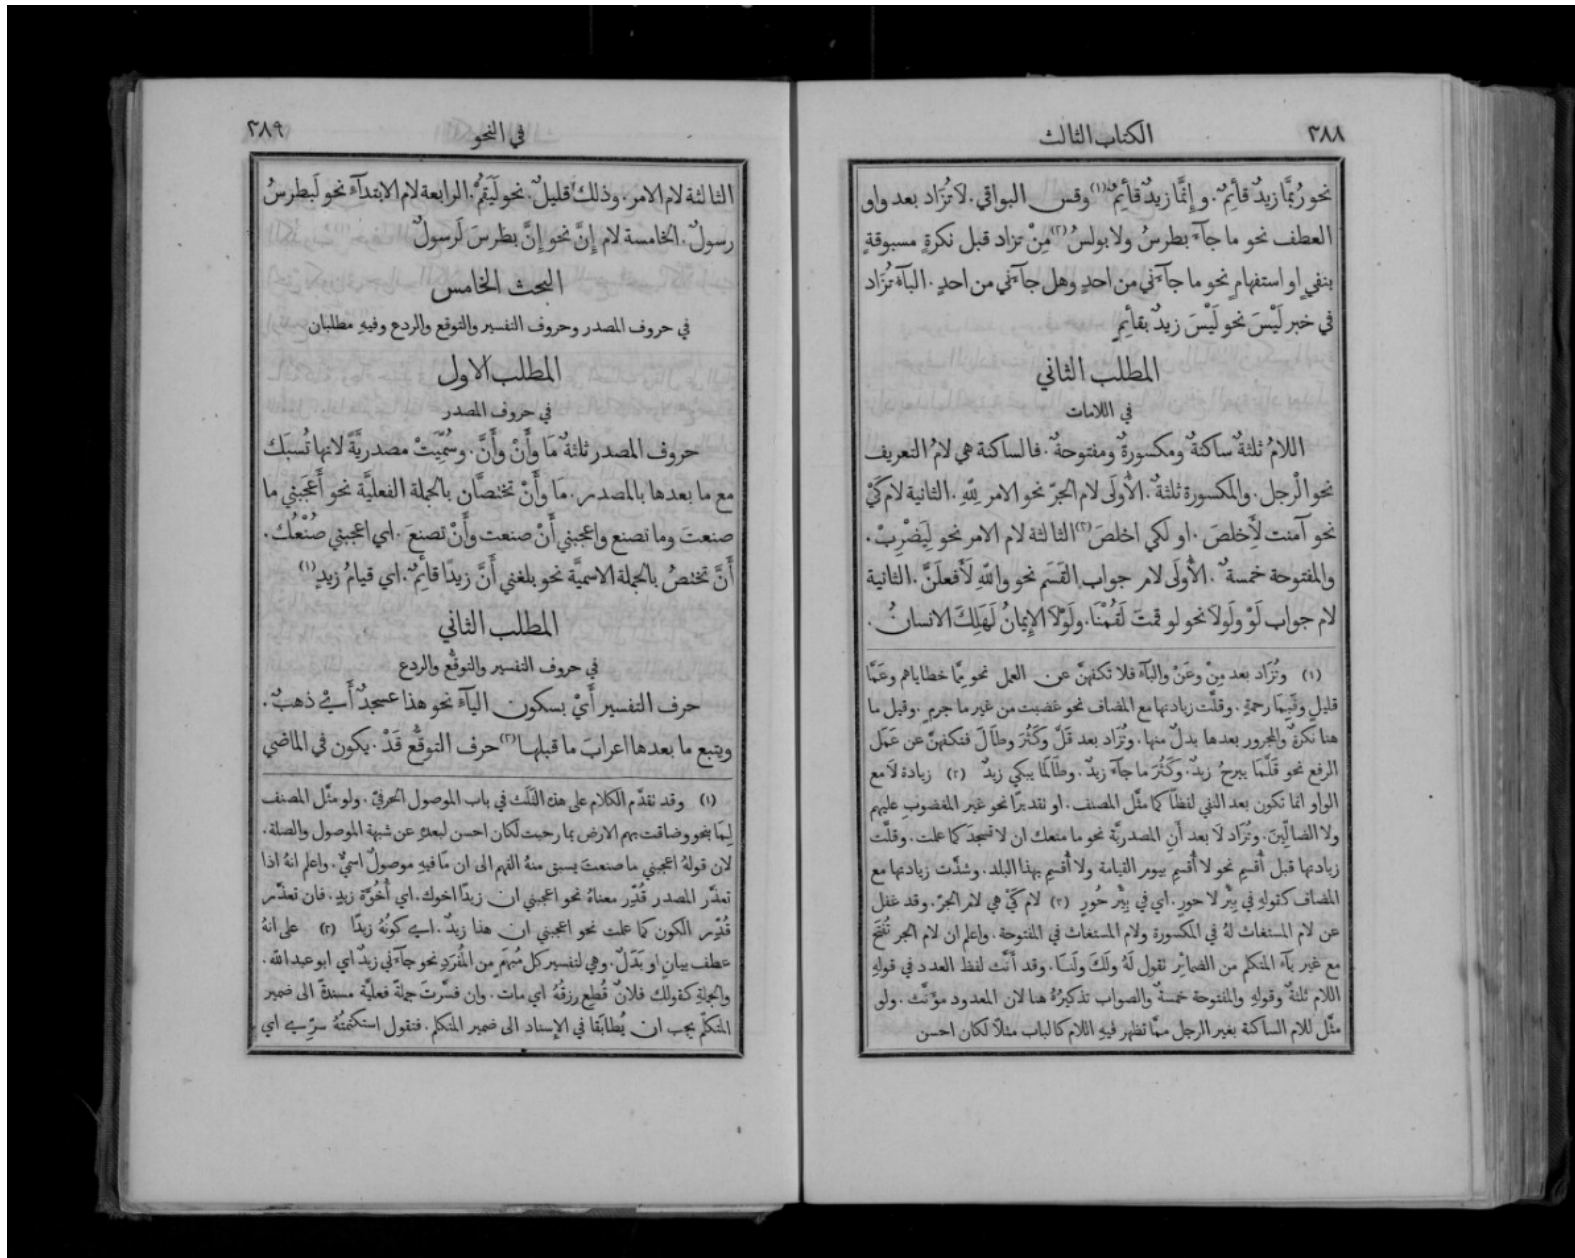 ٣٨٨
الكتاب الثالث
نحو رُبَّمَا زيدٌ قآئِمٌ. وإِنَّما زيدٌ قآئِمٌ (١) وقس البواقي. لاَ تُزَاد بعد واو
العطف نحو ما جآءَ بطرسُ ولا بولسُ (٢) مِنْ تزاد قبل نكرةٍ مسبوقةٍ
بنفيٍ او استفهامٍ نحو ما جآءَني من احدٍ وهل جآءَني من احدٍ. البآءَ تُزَاد
في خبر لَيْسَ نحو لَيْسَ زيدٌ بقآئِمٍ
المطلب الثاني
في اللامات
اللامُ ثلثةٌ ساكنةٌ ومكسورةٌ ومفتوحةٌ. فالساكنة هي لامُ التعريف
نحو الْرجل. والمكسورة ثلثةٌ. الأُولَى لام الجرّ نحو الامر لِلّٰهِ. الثانية لام كَيْ
نحو آمنت لِأَخلصَ. او لكي اخلصَ (٣) الثالثة لام الامر نحو لِيَضْرِبْ.
والمفتوحة خمسةٌ. الأُولَى لام جواب القَسَم نحو واللّٰهِ لَأَفعلَنَّ. الثانية
لام جواب لَوْ ولَولاَ نحو لو قمتَ لَقُمْنَا. ولَوْلاَ الإِيمانُ لَهَلِكَ الانسانُ.
(١) وتُزَاد بعد مِنْ وعَنْ والبآءَ فلا تكفهنَّ عن العمل نحو مِمَّا خطاياهم وعَمَّا
قليلٍ وفَبِمَا رحمةٍ. وقلَّت زيادتها مع المضاف نحو غضبت من غير ما جرمٍ. وقيل ما
هنا نكرةٌ والمجرور بعدها بدلٌ منها. وتُزَاد بعد قَلَّ وكَثُرَ وطَالَ فتكفهنَّ عن عَمَل
الرفع نحو قَلَّمَا يبرحُ زيدٌ. وكَثُرَ ما جآءَ زيدٌ. وطَالَمَا يبكي زيدٌ (٢) زيادة لاَ مع
الواو انما تكون بعد النفي لفظًا كما مثَّل المصنف. او تقديرًا نحو غير المغضوب عليهم
ولا الضالِّين. وتُزَاد لاَ بعد أَنِ المصدريَّة نحو ما منعك ان لا تسجدَ كما علمت. وقلَّت
زيادتها قبل أُقسِم نحو لا أُقسِم بيوم القيامة ولا أُقسِم بهذا البلد. وشذّت زيادتها مع
المضاف كقولهِ في بِئْرِ لا حورٍ. اي في بِئْرِ حُورٍ (٣) لام كَيْ هي لام الجرّ. وقد غفل
عن لام المستغاث لهُ في المكسورة ولام المستغاث في المفتوحة. واعلم ان لام الجر تُفتَح
مع غير يآء المتكلم من الضمائر تقول لَهُ ولَكَ ولَنا. وقد أَنَّث لفظ العدد في قولهِ
اللام ثلثةٌ وقولهِ والمفتوحة خمسةٌ والصواب تذكيرُهُ هنا لان المعدود مؤنَّث. ولو
مثَّل للام الساكنة بغير الرجل ممَّا تظهر فيهِ اللام كالباب مثلاً لكان احسن
في النحو
٣٨٩
الثالثة لام الامر. وذلك قليلٌ. نحو لَيَقُمْ. الرابعة لام الابتدآء نحو لَبطرسُ
رسولٌ. الخامسة لام إِنَّ نحو إِنَّ بطرسَ لَرسولٌ
البحث الخامس
في حروف المصدر وحروف التفسير والتوقع والردع وفيهِ مطلبان
المطلب الاول
في حروف المصدر
حروف المصدر ثلثةٌ مَا وأَنْ وأَنَّ. وسُمِّيَتْ مصدريَّةً لانها تُسبَك
مع ما بعدها بالمصدر. مَا وأَنْ تختصَّان بالجملة الفعليَّة نحو أَعجَبني ما
صنعتَ وما تصنع واعجبني أَنْ صنعت وأَنْ تصنعَ. اي اعجبني صُنْعُك.
أَنَّ تختصُّ بالجملة الاسميَّة نحو بلغني أَنَّ زيدًا قائِمٌ. اي قيامُ زيدٍ (١)
المطلب الثاني
في حروف التفسير والتوقُّع والردع
حرف التفسير أَيْ بسكون اليآءَ نحو هذا عسجدٌ أَيْ ذهبٌ.
ويتبع ما بعدها اعرابَ ما قبلها (٢) حرف التوقُّع قَدْ. يكون في الماضي
(١) وقد تقدَّم الكلام على هذه الثَلَث في باب الموصول الحرفيّ. ولو مثَّل المصنف
لِمَا بنحو وضاقت بهم الارض بما رحبت لكان احسن لبعدهِ عن شبهة الموصول والصلة.
لان قولهُ اعجبني ما صنعت يسبق منهُ الفهم الى ان مَا فيهِ موصولٌ اسميٌّ. واعلم انهُ اذا
تعذَّر المصدر قُدِّر معناهُ نحو اعجبني ان زيدًا اخوك. اي أُخُوَّة زيدٍ. فان تعذَّر
قُدِّر الكون كما علمت نحو اعجبني ان هذا زيدٌ. اي كونُهُ زيدًا (٢) على انهُ
عطف بيانٍ او بَدَلٌ. وهي لتفسير كل مُبهَمٍ من المُفرَدِ نحو جآءَني زيدٌ اي ابو عبد اللّٰه.
والجملةِ كقولك فلانٌ قُطِع رزقُهُ اي مات. وان فسَّرتَ جملةً فعليَّة مسندةً الى ضمير
المتكلّم يجب ان يُطابَقا في الإِسناد الى ضمير المتكلم. فتقول استكتمتُهُ سرّي اي